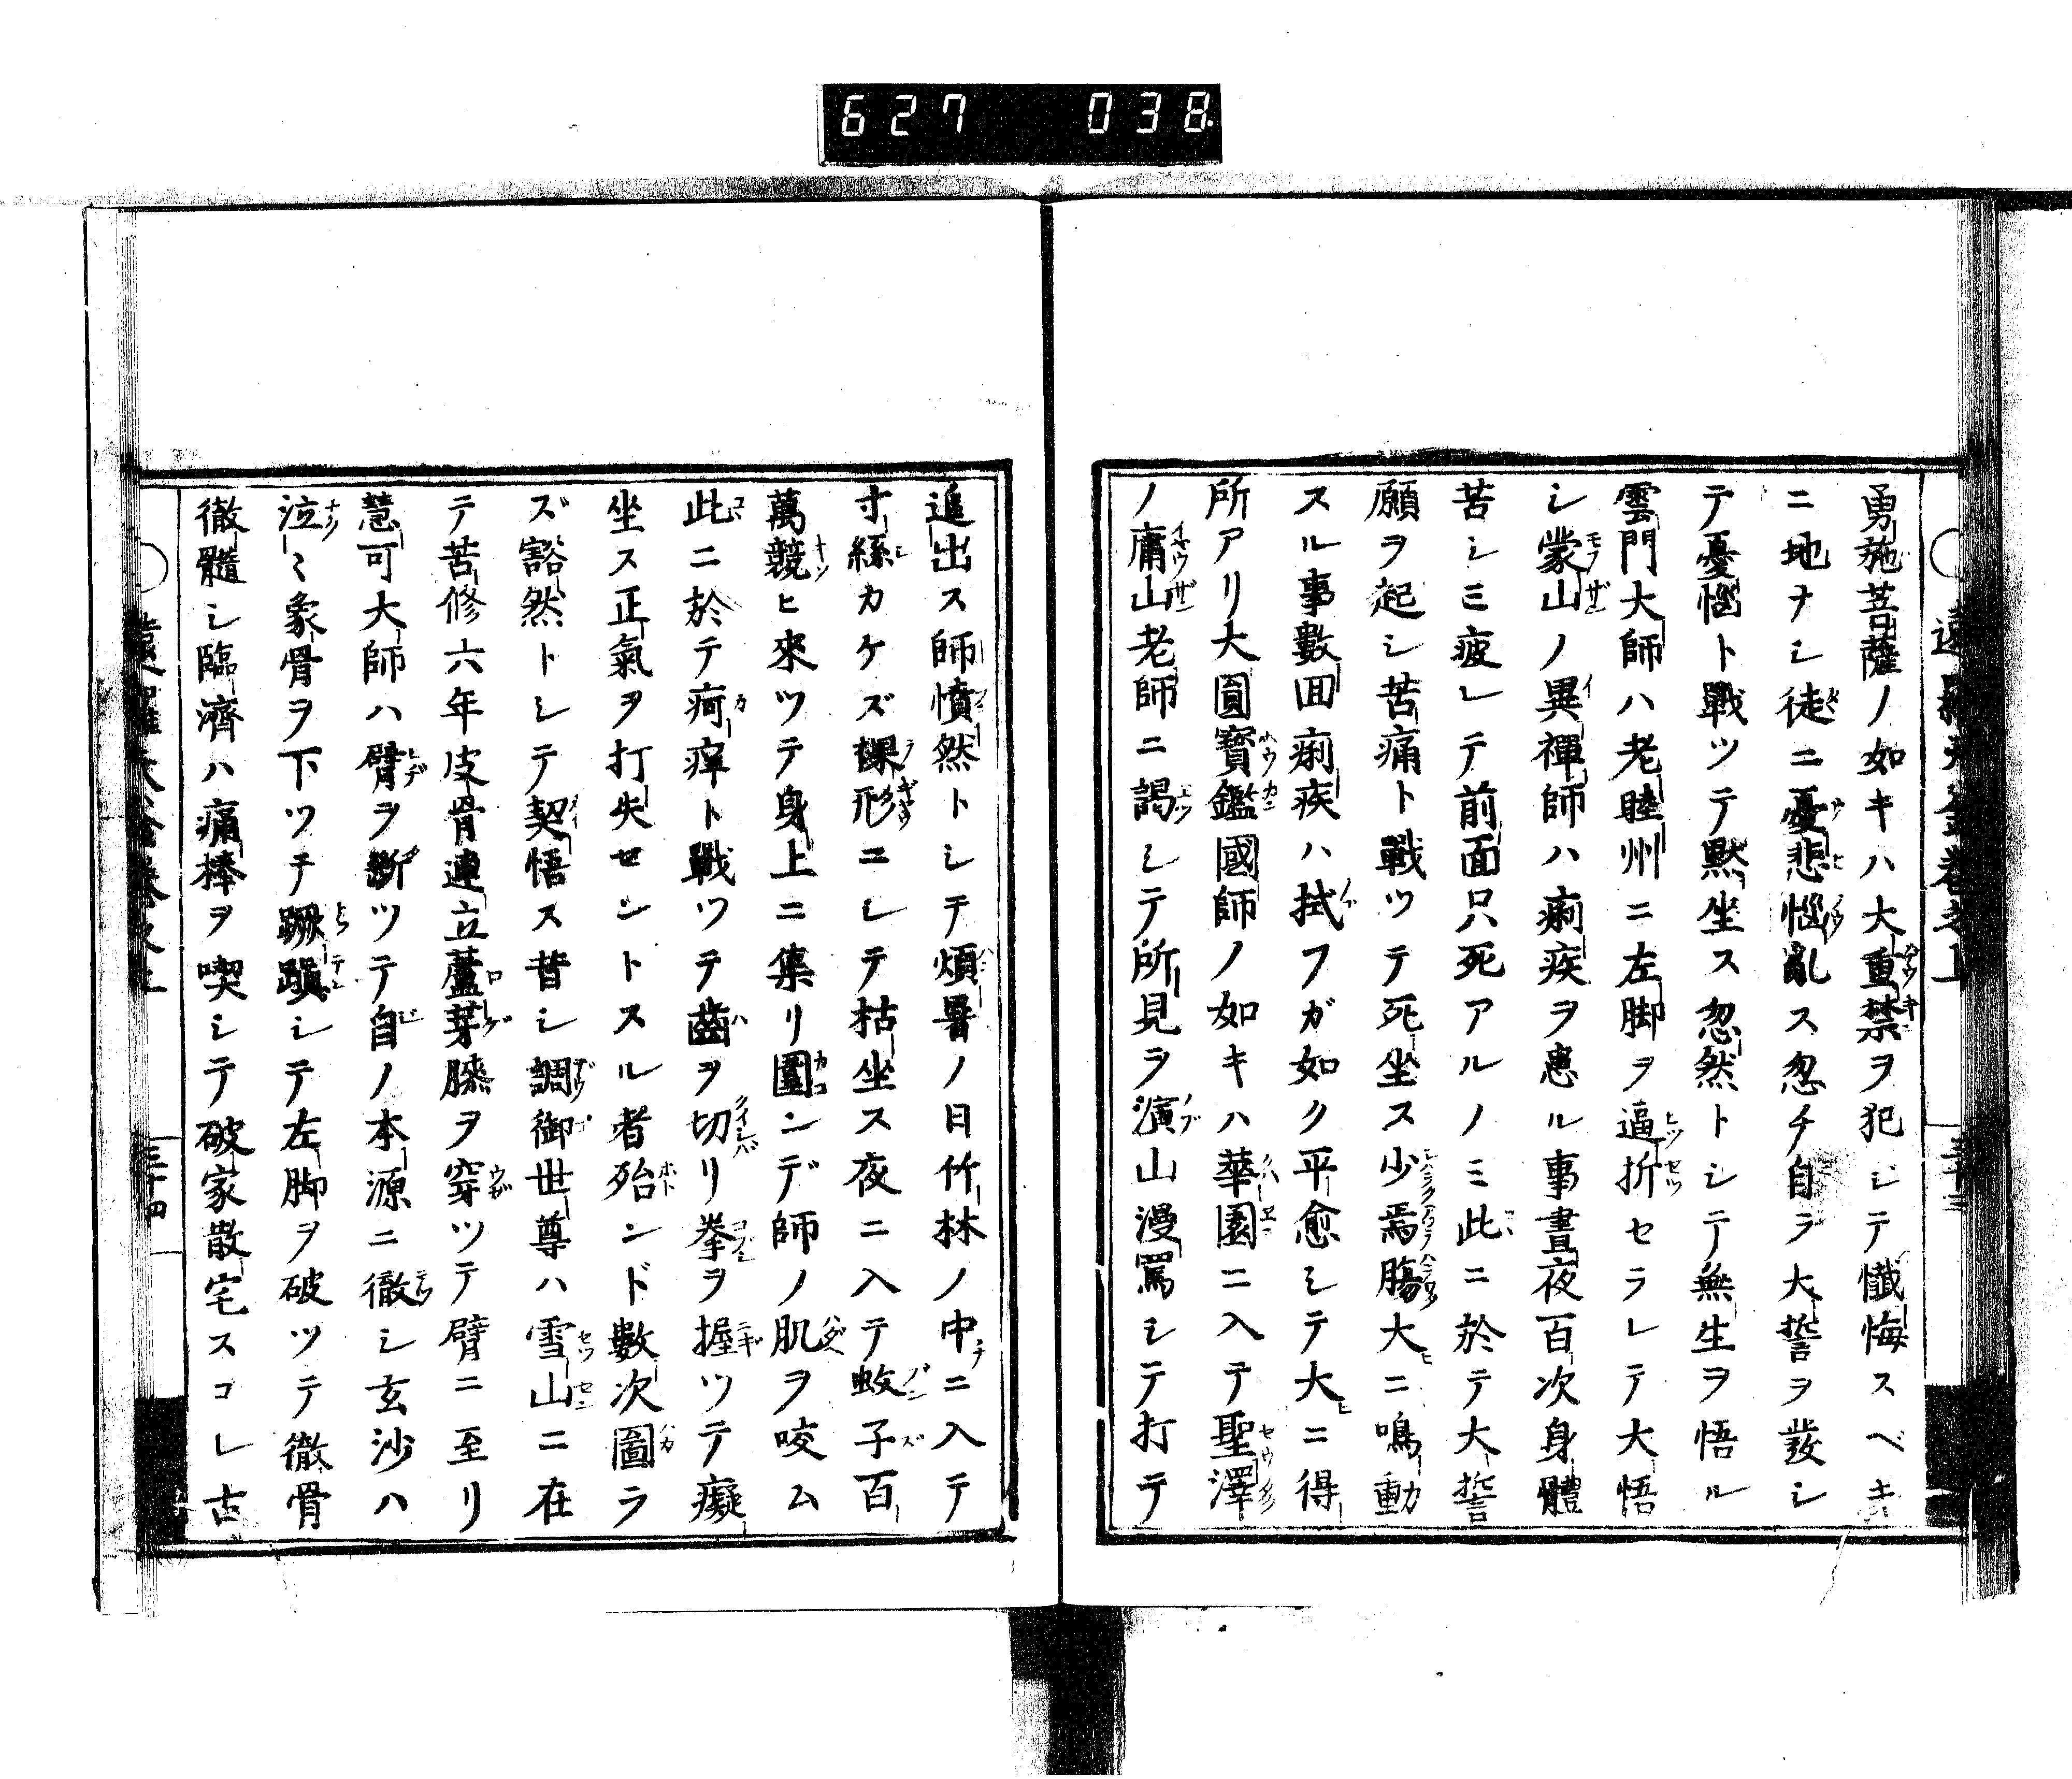 627 038
勇施菩薩ノ如キハ大重禁ヲ犯シテ懺悔スベキ
ニ地ナシ徒ニ憂悲惱亂ス忽チ自ラ大誓ヲ發シ
テ憂惱ト戰ツテ默坐ス忽然トシテ無生ヲ悟ル
雲門大師ハ老睦州ニ左脚ヲ逼折セラレテ大悟
シ蒙山ノ異禪師ハ痢疾ヲ患ル事晝夜百次身體
苦シミ疲レテ前面只死アルノミ此ニ於テ大誓
願ヲ起シ苦痛ト戰ツテ死坐ス少焉腸大ニ鳴動
スル事數回痢疾ハ拭フガ如ク平愈シテ大ニ得
所アリ大圓寶鑑國師ノ如キハ華園ニ入テ聖澤
ノ庸山老師ニ謁シテ所見ヲ演山漫罵シテ打テ
追出ス師憤然トシテ煩暑ノ日竹林ノ中ニ入テ
寸絲カケズ裸形ニシテ枯坐ス夜ニ入テ蚊子百
萬競ヒ來ツテ身上ニ集リ圍ンデ師ノ肌ヲ咬ム
此ニ於テ痾痒ト戰ツテ齒ヲ切リ拳ヲ握ツテ癡
坐ス正氣ヲ打失セントスル者殆ンド數次圖ラ
ズ豁然トシテ契悟ス昔シ調御世尊ハ雪山ニ在
テ苦修六年皮骨連立蘆芽膝ヲ穿ツテ臂ニ至リ
慧可大師ハ臂ヲ斷ツテ自ノ本源ニ徹シ玄沙ハ
泣〻象骨ヲ下ツテ蹶躓シテ左脚ヲ破ツテ徹骨
徹髓シ臨濟ハ痛棒ヲ喫シテ破家散宅スコレ古
三十四